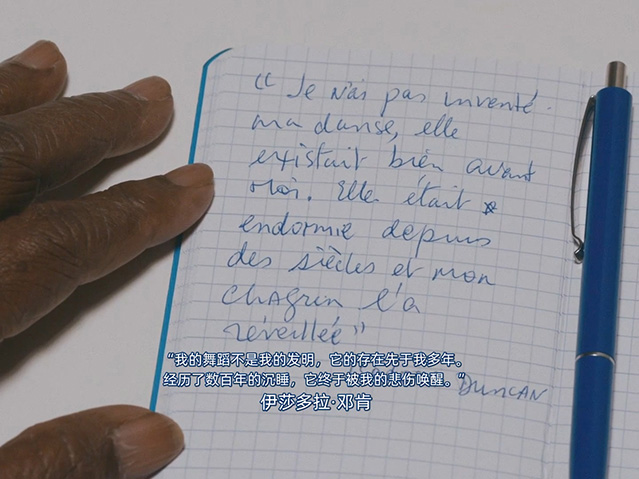 “Je n'ai pas inventé
ma danse, elle
existait bien avant
moi. Elle était
endormie depuis
des siècles et mon
chagrin l'a
réveillée”
DUNCAN
“我的舞蹈不是我的发明，它的存在先于我多年。
经历了数百年的沉睡，它终于被我的悲伤唤醒。”
伊莎多拉·邓肯